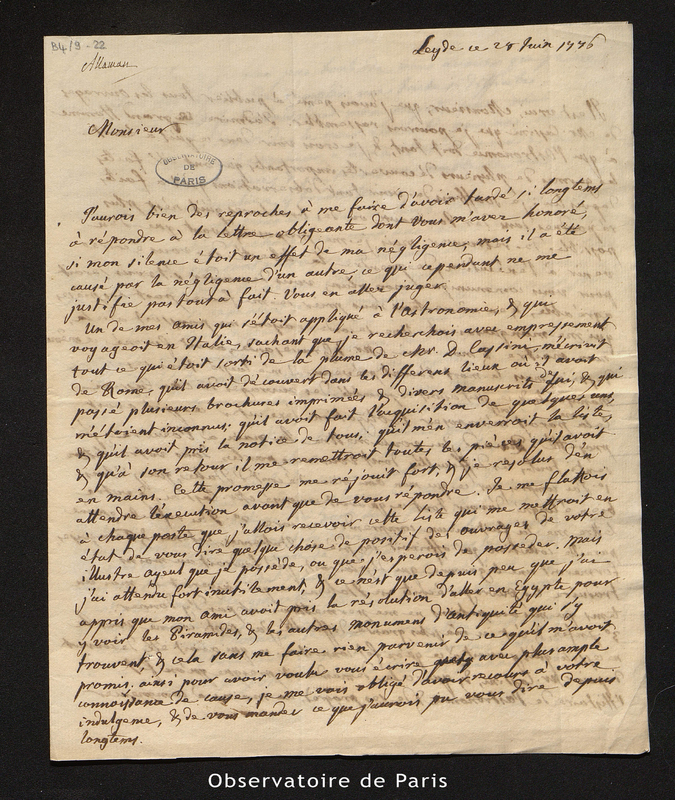 B4/9-22
Allaman
Leyde ce 28 Juin 1776
Monsieur
OBSERVATOIRE
DE
PARIS
J'aurois bien des reproches à me faire d'avoir tardé si longtems
à répondre à la lettre obligeante dont vous m'avez honoré,
si mon silence étoit un effet de ma négligence, mais il a été
causé par la négligence d'un autre, ce qui cependant ne me
justifie pas tout à fait. Vous en allez juger.
Un de mes amis qui s'étoit appliqué à l'Astronomie, & qui
voyageoit en Italie, sachant que je recherchois avec empressement
tout ce qui étoit sorti de la plume de Mr. D. Cassini, m'écrivit
de Rome, qu'il avoit découvert dans les différens lieux où il avoit
passé plusieurs brochures imprimées & divers manuscrits de lui, & qui
m'étoient inconnus; qu'il avoit fait l'acquisition de quelques uns,
& qu'il avoit pris la notice de tous; qu'il m'en enverroit la liste,
& qu'à son retour il me remettroit toutes les pièces qu'il avoit
en mains. Cette promesse me réjouit fort, & je résolus d'en
attendre l'exécution avant que de vous répondre. Je me flattois
à chaque poste que j'allois recevoir cette liste qui me mettroit en
état de vous dire quelque chose de positif des ouvrages de votre
illustre ayeul que je possède, ou que j'espérois de posséder. Mais
j'ai attendu fort inutilement, & ce n'est que depuis peu que j'ai
appris que mon ami avoit pris la résolution d'aller en Egypte pour
y voir les Piramides, & les autres monumens d'antiquité qui s'y
trouvent & cela sans me faire rien parvenir de ce qu'il m'avoit
promis. ainsi pour avoir voulu vous écrire avec plus ample
connoissance de cause, je me vois obligé d'avoir recours à votre
indulgence, & de vous mander ce que j'aurois pu vous dire depuis
longtems.
Observatoire de Paris